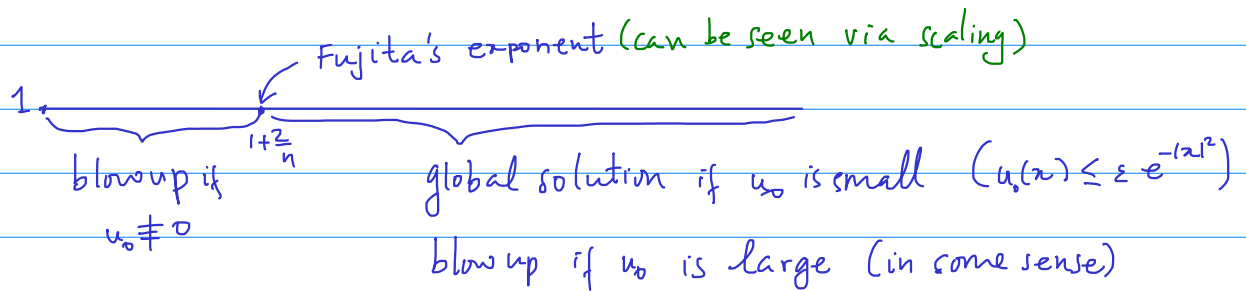 Fujita's exponent (can be seen via scaling)
1
1+2/n
blowup if global solution if u₀ is small (u₀(x) ≤ ε e^{-|x|²})
u₀ ≢ 0
blowup if u₀ is large (in some sense)